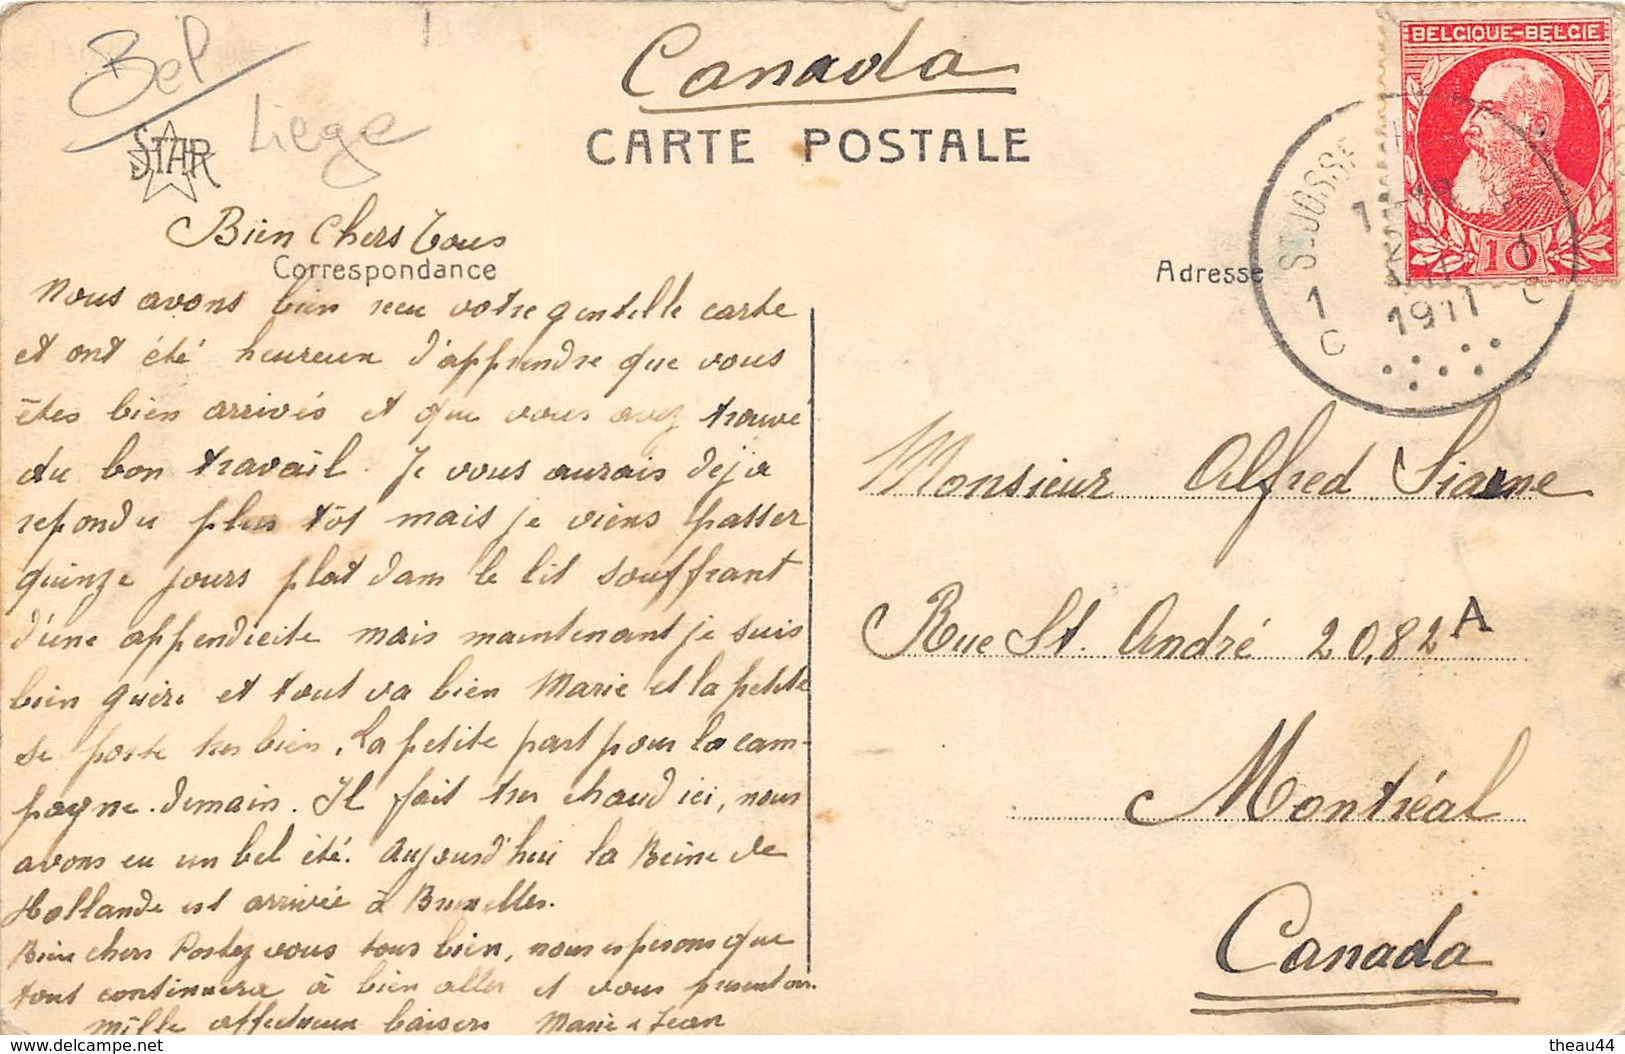 Bel
Liege
STAR
Canada
CARTE POSTALE
BELGIQUE-BELGIE
10
ST-JOSSE
1911
1 C
C
Bien Chers Tous
Correspondance
Nous avons bien reçu votre gentille carte
et ont été heureux d'apprendre que vous
êtes bien arrivés et que vous avez trouvé
du bon travail. Je vous aurais déja
repondu plus tôt mais je viens passer
quinze jours plat dans le lit souffrant
d'une appendicite mais maintenant je suis
bien guéri et tout va bien Marie et la petite
se porte tres bien, la petite part pour la cam-
pagne demain. Il fait tres chaud ici, nous
avons eu un bel été. Aujourd'hui la Reine de
Hollande est arrivée à Bruxelles.
Bien chers Portez vous tous bien, nous esperons que
tout continuera à bien aller et vous presentons
mille affectueux baisers Marie & Jean
Adresse
Monsieur Alfred
Rue St. André 20,82 A
Montréal
Canada
https://www.delcampe.net
theau44